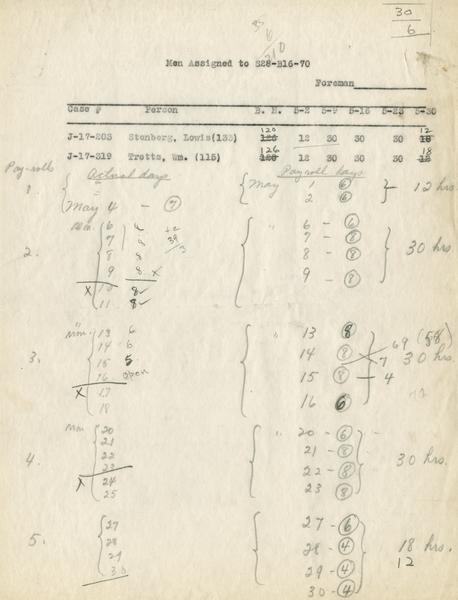 30
6
Men Assigned to S28-B16-70
Foreman
Case # Person B. H. 5-2 5-9 5-16 5-23 5-30
120 12
J-17-203 Stenberg, Lowis(133) 120 12 30 30 30 18
126 18
J-17-319 Trotts, Wm. (115) 120 12 30 30 30 12
Pay-rolls Actual days Payroll days
1. May 1 6 12 hrs.
May 4 - 7 2 6
2. Mon. 6 8 " 6 - 6 30 hrs.
7 8 39 7 - 8
8 8 8 - 8
9 8 x 9 - 8
x 10 8 ✓
11 8 ✓
3. Mon 13 6 " 13 8 69 (58)
14 6 14 8 7 30 hrs.
15 5 15 8 4
16 open 16 6
x 17
18
4. Mon 20 " 20 - 6 30 hrs.
21 21 - 8
22 22 - 8
23 23 8
x 24
25
5. 27 27 - 6
28 28 - 4 18 hrs.
29 29 - 4 12
30 30 - 4